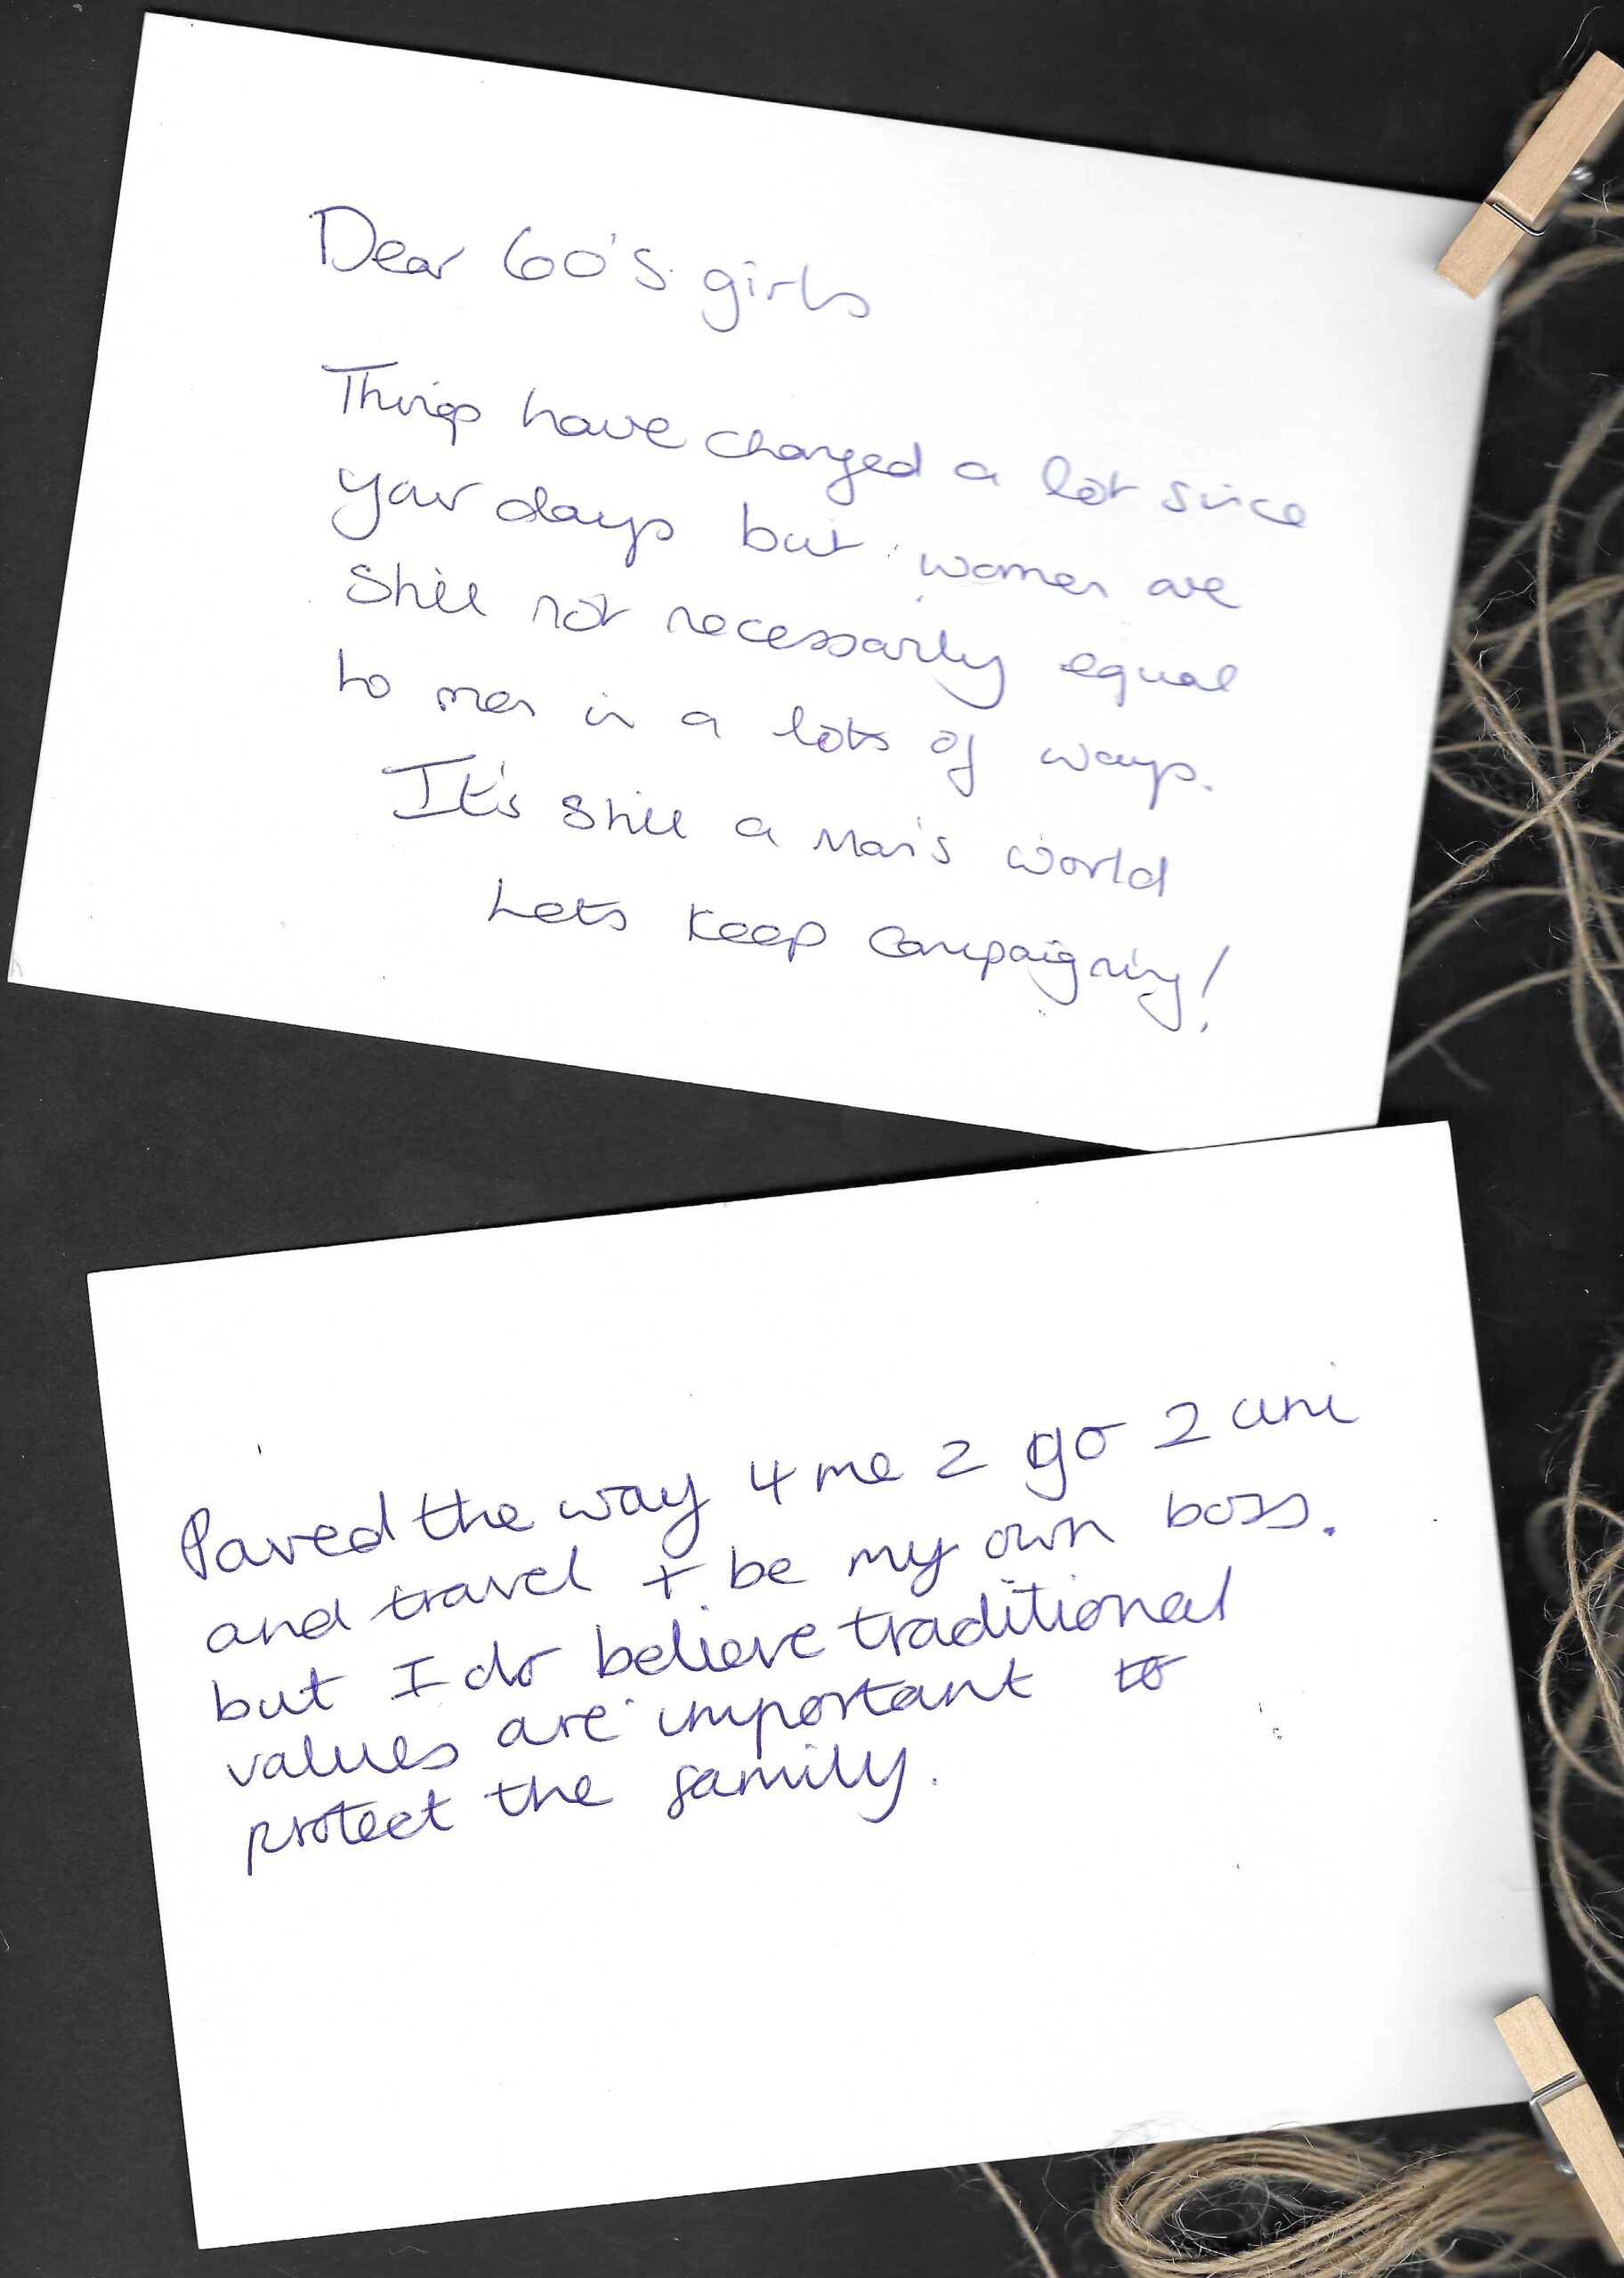 Dear 60's girls
Things have changed a lot since
your days but women are
still not necessarily equal
to men in a lots of ways.
It's still a Man's world
Lets keep campaigning!
Paved the way 4 me 2 go 2 uni
and travel + be my own boss.
but I do believe traditional
values are important to
protect the family.